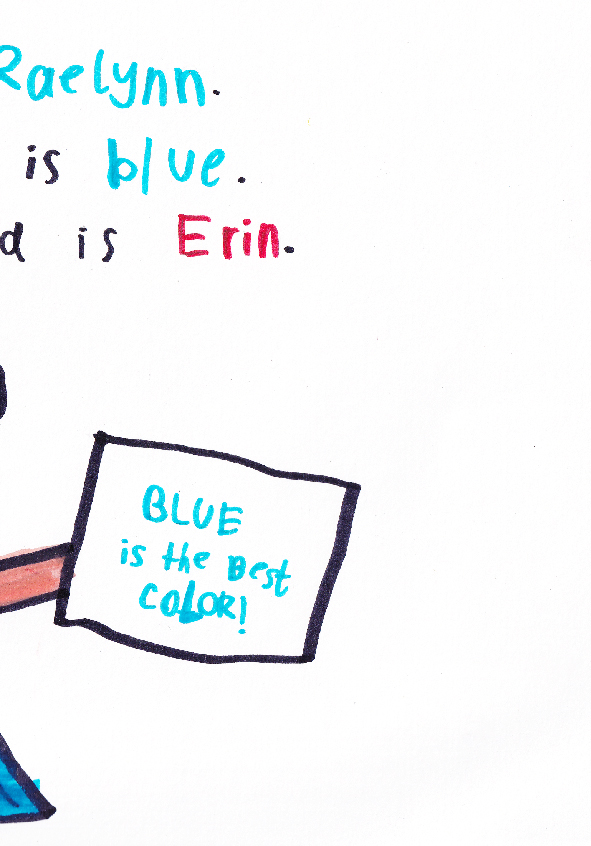 Raelynn.
is blue.
d is Erin.
BLUE
is the Best
COLOR!